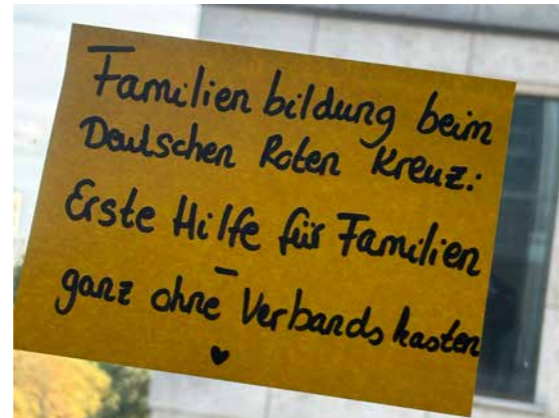 Familienbildung beim
Deutschen Roten Kreuz:
Erste Hilfe für Familien
–
ganz ohne Verbandskasten
♥